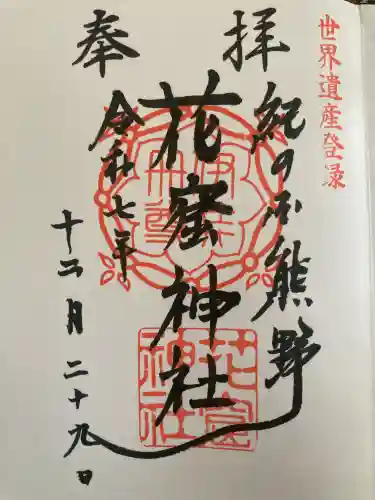 世界遺産登録
奉拝
紀の国熊野
花窟神社
令和七年
十二月二十九日
花窟
神社